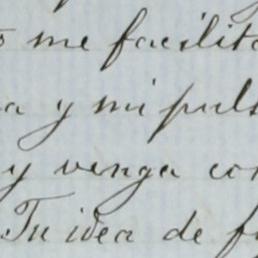 me facilita
a y mi puls
y venga con
Tu idea de f